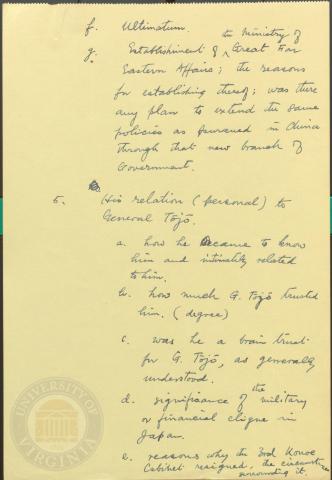 f. Ultimatum.
g. Establishment of the Ministry of Great Far
Eastern Affairs; the reasons
for establishing thereof; was there
any plan to extend the same
policies as pursued in China
through that new branch of
Government.
5. His relation (personal) to
General Tōjō.
a. how he became to know
him and intimately related
to him.
b. how much G. Tōjō trusted
him. (degree)
c. was he a brain trust
for G. Tōjō, as generally
understood.
d. significance of the military
or financial clique in
Japan.
e. reasons why the 3rd Konoe
Cabinet resigned, the circumstances
surrounding it.
UNIVERSITY OF VIRGINIA